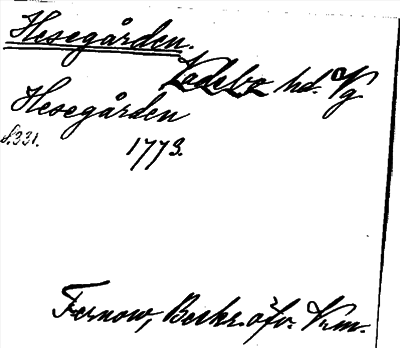 Hesegården.
Kadebo hd. Vg
Hesegården
s.331. 1773.
Fernow, Beskr. öfv. Vrm.